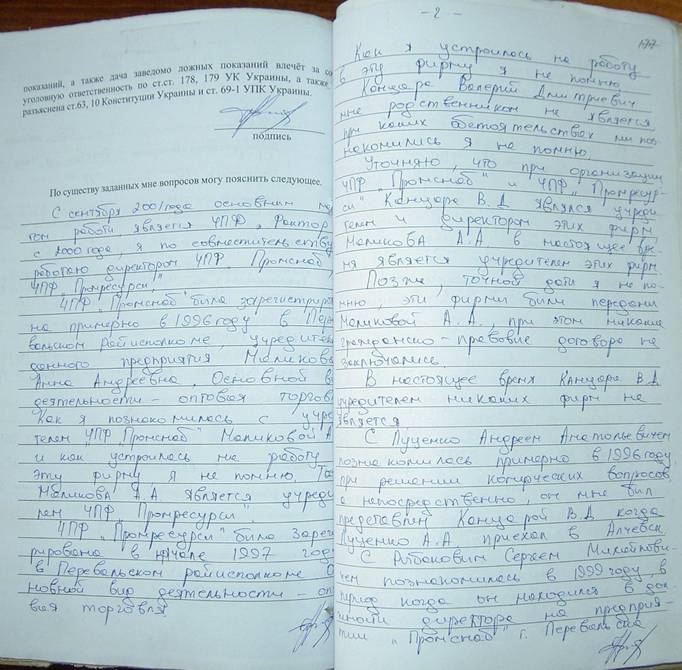 показаний, а также дача заведомо ложных показаний влечёт за со
уголовную ответственность по ст.ст. 178, 179 УК Украины, а также
разъяснена ст.63, 10 Конституции Украины и ст. 69-1 УПК Украины.
подпись
По существу заданных мне вопросов могу пояснить следующее.
С сентября 2001года основным ме
том работы является ЧПФ „Фактор
с 2000 года, я по совместительству
работаю директором ЧПФ „Промснаб",
ЧПФ „Промресурсы".
ЧПФ „Промснаб" была зарегистриро
на примерно в 1996 году в Пере
вальском райисполкоме, учредител
данного предприятия Маликова
Анна Андреевна. Основной ви
деятельности – оптовая торгов
Как я познакомилась с учре
телем ЧПФ „Промснаб" Маликовой А
и как устроилась на работу
эту фирму я не помню. Так
Маликова А.А является учреди
лем ЧПФ „Промресурсы".
ЧПФ „Промресурсы" была зареги
рирована в начале 1997 год
в Перевальском райисполкоме О
новной вид деятельности – опт
вая торговля.
- 2 -
177
Как я устроилась на работу
в эту фирму я не помню
Канцара Валерий Дмитриевич
мне родственником не является
при каких обстоятельствах мы поз
накомились я не помню.
Уточняю, что при организации
ЧПФ „Промснаб" и ЧПФ „Промресур-
сы" Канцара В.Д являлся учреди
телем и директором этих фирм
Маликова А.А. в настоящее вре-
мя является учредителем этих фирм.
Позже, точной даты я не по-
мню, эти фирмы были переданы
Маликовой А.А., при этом никакие
гражданско-правовые договора не
заключались.
В настоящее время Канцара В.Д
учредителем никаких фирм не
является
С Луценко Андреем Анатольевичем
познакомилась примерно в 1996году
при решении комерческих вопросов,
а непосредственно, он мне был
представлен Канцарой В.Д когда
Луценко А.А приехал в Алчевск
С Рыбаковым Сергеем Михайлови-
чем познакомилась в 1999году в
период когда он находился в дол-
жности директора на предприя-
тии „Промснаб" г. Перевальска